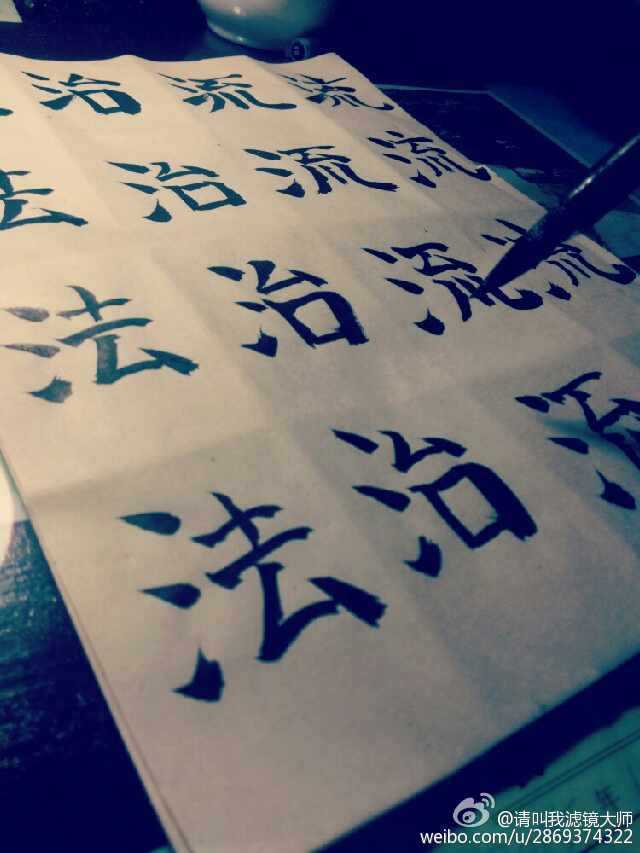 治流流
法治流流
法治流流
法治流
@请叫我滤镜大师
weibo.com/u/2869374322